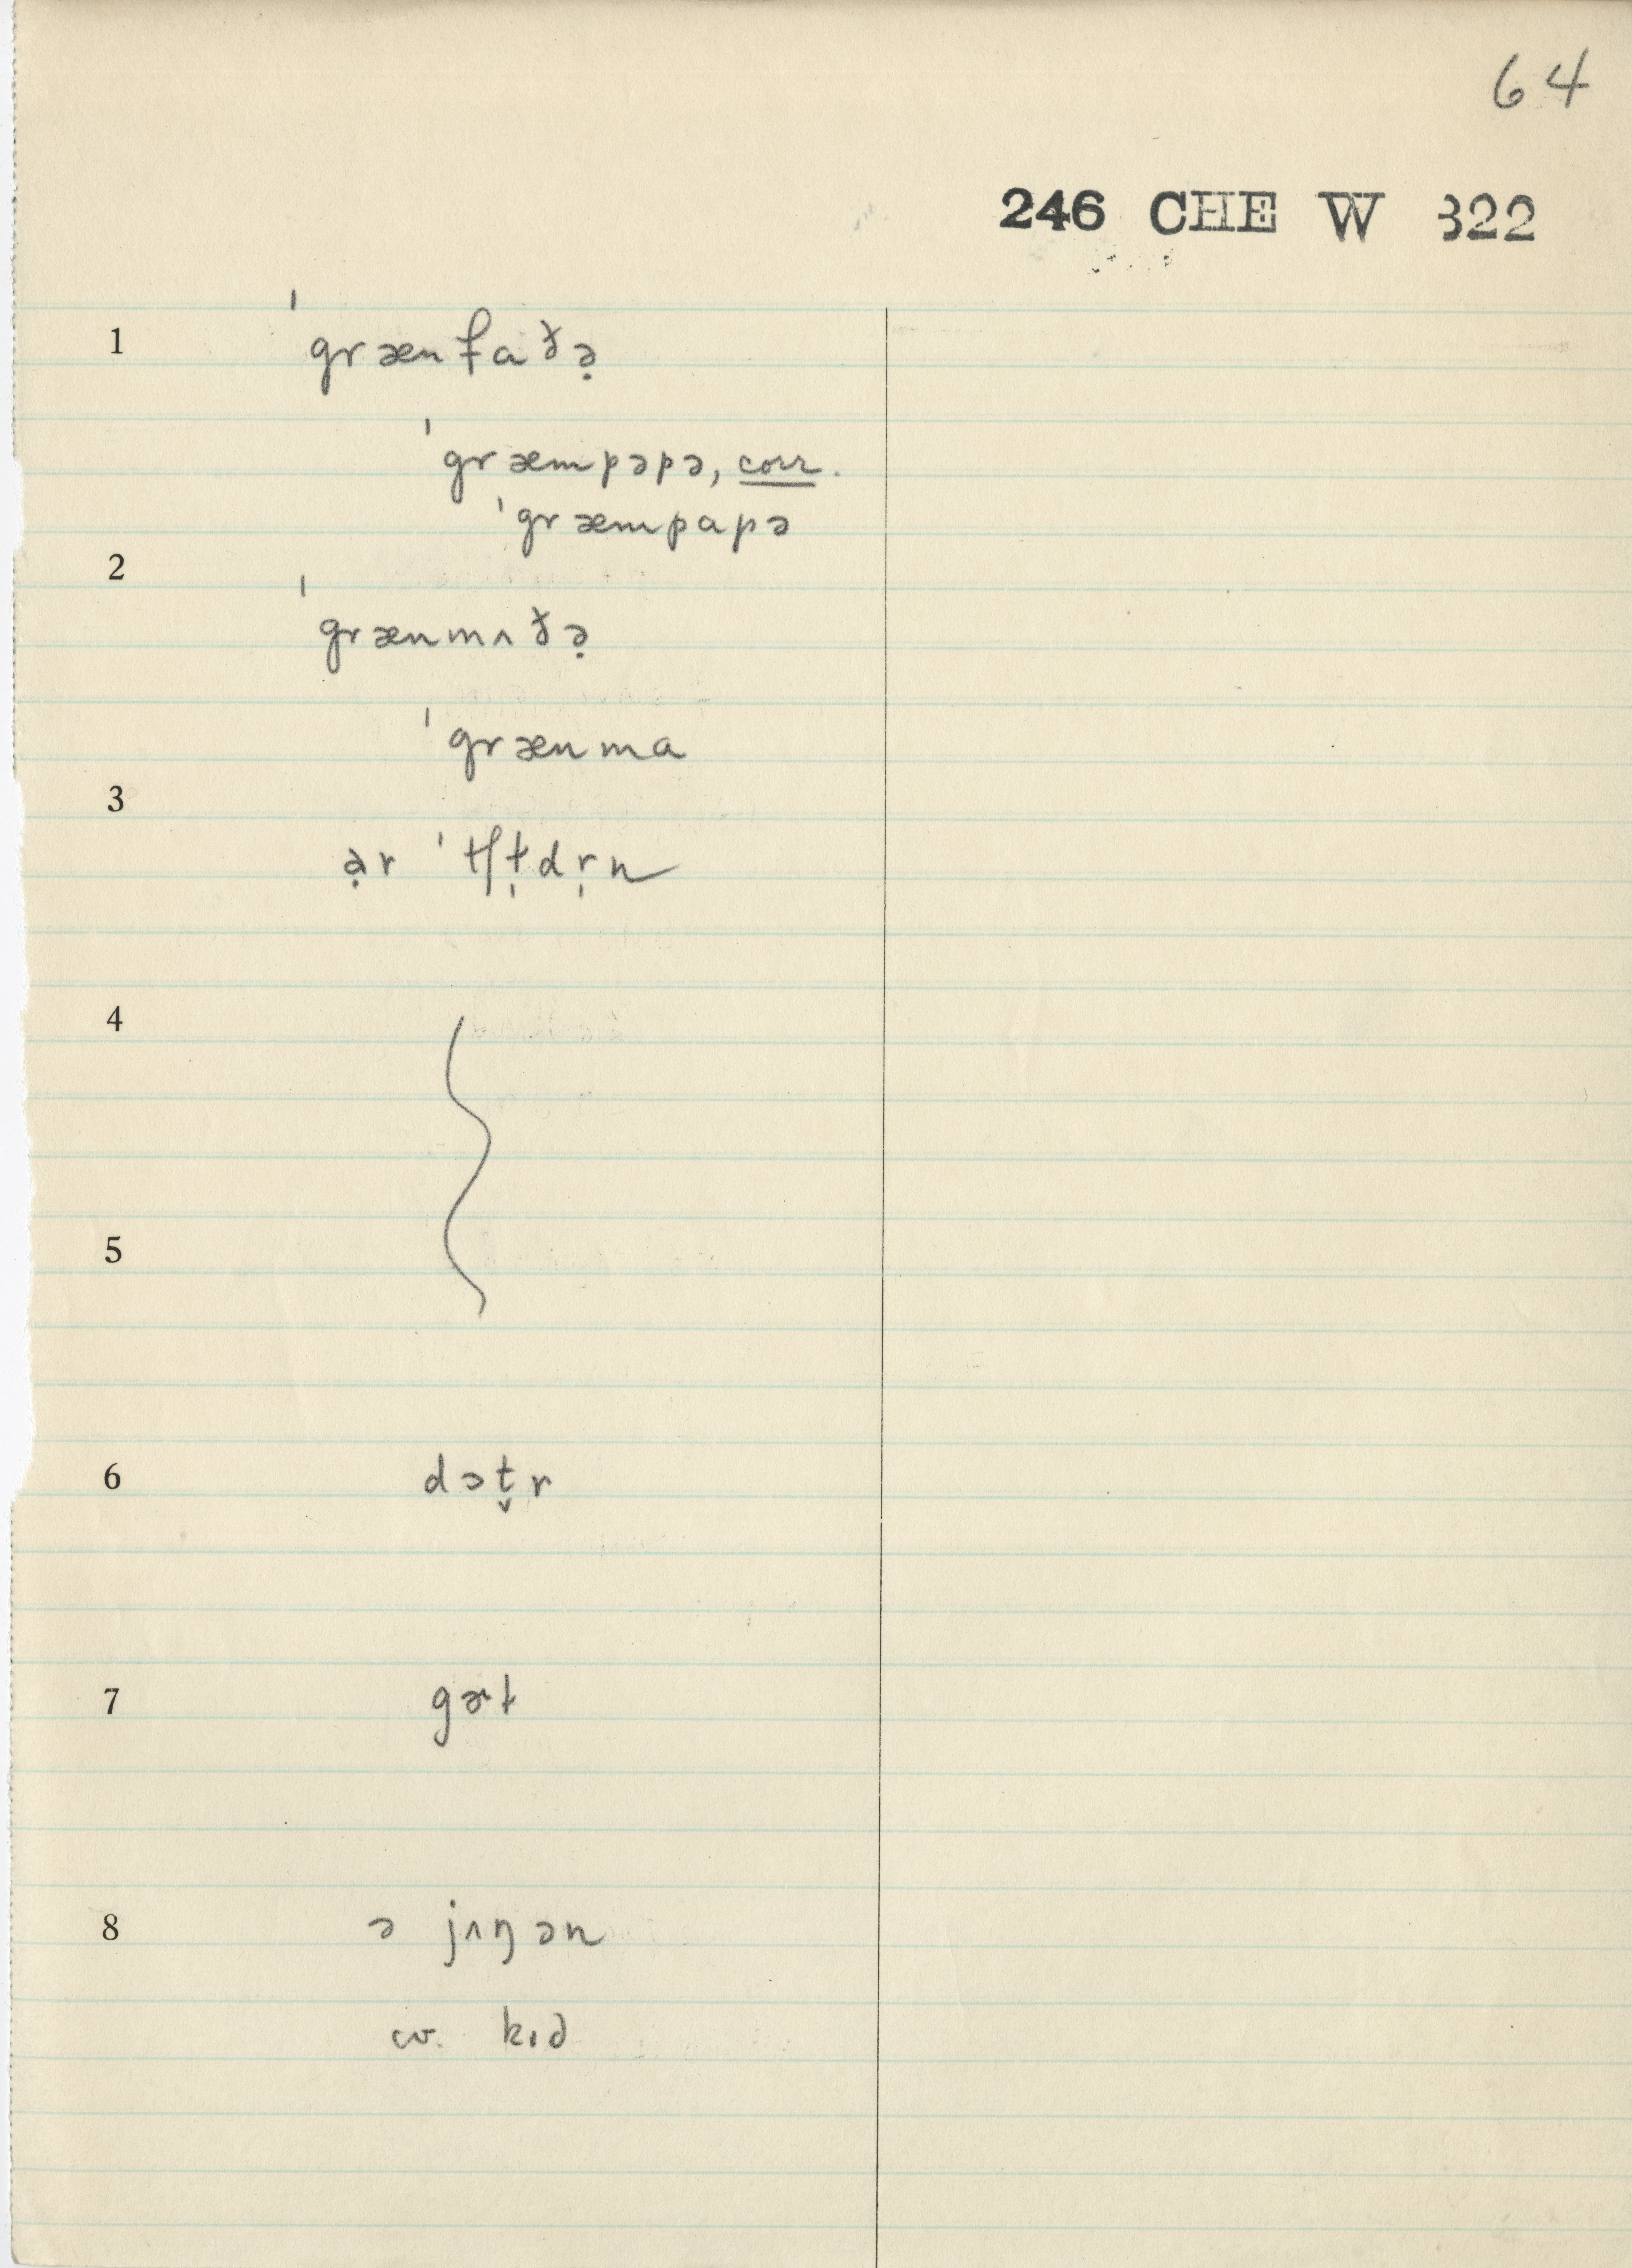 64
246 CHE W 322
1 ˈgrænfaðə̣
ˈgræmpəpə, corr.
ˈgræmpapə
2 ˈgrænmʌðə̣
ˈgrænma
3 ə̣r ˈtʃɫ̩dr̩n
4
5
6 dɔt̬r
7 gɚɫ
8 ə jʌŋən
cv. kɪd